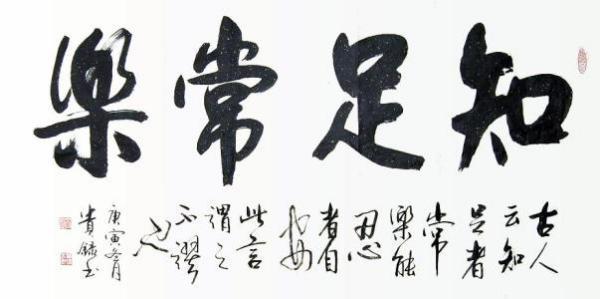 知足常樂
古人
云知
足者
常
樂能
忍
者自
安
此言
謂之
不謬
也
庚寅冬月
貴録书